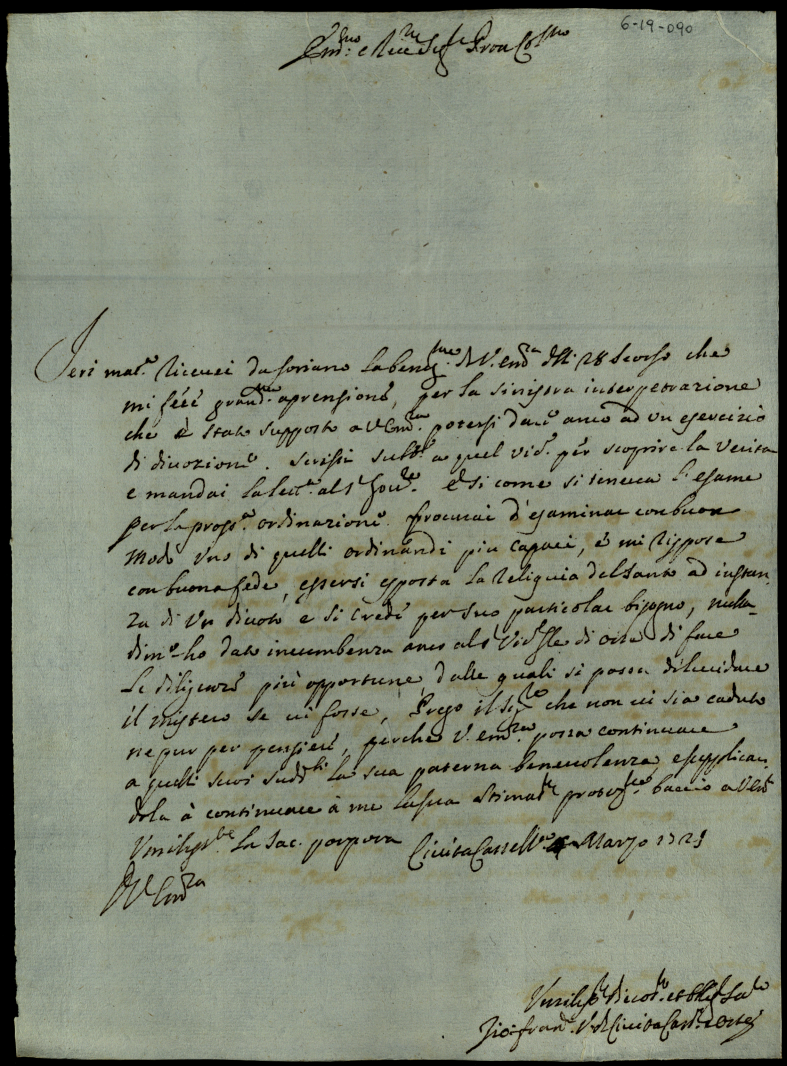 6-19-090
Em.mo e Rev.mo Sig.re Pron Col.mo
Ieri mat.a riceuei da Soriano la benig.ma di V. Em.za delli 28 Scorso che
mi fece grand.ma aprensione, per la sinistra interpetrazione
che è stato supposto a V Em.za potersi dare anco ad un esercizio
di diuozione. Scrissi subb.o a quel Vic.o per scoprire la Verita
e mandai la lett.a al S.r Gou.re. E si come si teneua l'esame
per la pross.a ordinazione procurai d'esaminar con buon
modo Vno di quelli ordinandi piu capaci, e mi rispose
con buona fede, essersi esposta la Reliquia del Santo ad instan-
za di Vn diuoto e si crede per suo particolar bisogno, nulla-
dim.o ho dato incumbenza anco al S.r Vic.o Gle di Orte di fare
le diligenze più opportune dalle quali si possa dilucidare
il mistero se ui fosse, Prego il Sig.re che non ui sia caduto
ne pur per pensiero, perche V. Em.za possa continuare
a quelli suoi sudd.ti la sua paterna beneuolenza e supplican-
dola à continuare à me la sua stimat.ma protez.ne baccio a V Em.za
Vmilm.te la Sac. porpora Ciuita Castell.a Marzo 1721
D V Em.za
Vmiliss.o Diuot.mo et Obblig.mo Ser.e
Gio: Fran.o V. di Ciuita Cast.a e Orte